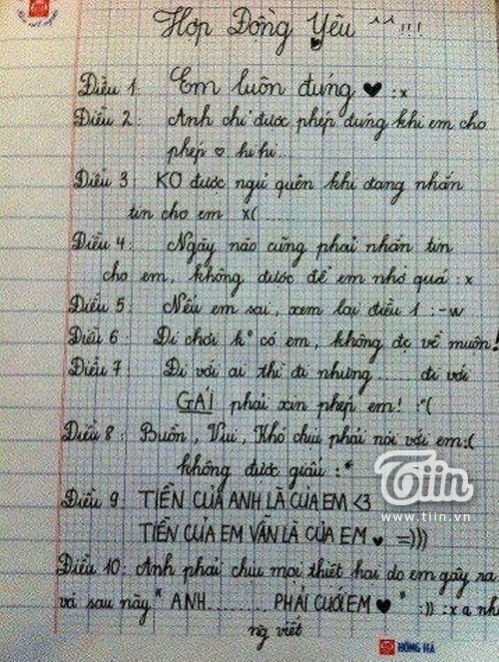 Hợp Đồng Yêu ^^ !!!
Điều 1: Em luôn đúng ♥ :x
Điều 2: Anh chỉ được phép đúng khi em cho
phép ♡ hi hi...
Điều 3: KO được ngủ quên khi đang nhắn
tin cho em x( ......
Điều 4: Ngày nào cũng phải nhắn tin
cho em, không được để em nhớ quá :x
Điều 5: Nếu em sai, xem lại điều 1 :-w
Điều 6: Đi chơi k° có em, không đc về muộn!
Điều 7: Đi với ai thì đi nhưng ..... đi với
GÁI phải xin phép em! :"(
Điều 8: Buồn, Vui, Khó chịu phải nói với em:(
không được giấu :*
Điều 9: TIỀN CỦA ANH LÀ CỦA EM <3
TIỀN CỦA EM VẪN LÀ CỦA EM ♥ =)))
Điều 10: Anh phải chịu mọi thiệt hại do em gây ra
và sau này " ANH......... PHẢI CƯỚI EM ♥ " :)) :x
Tiin
www.tiin.vn
HỒNG HÀ